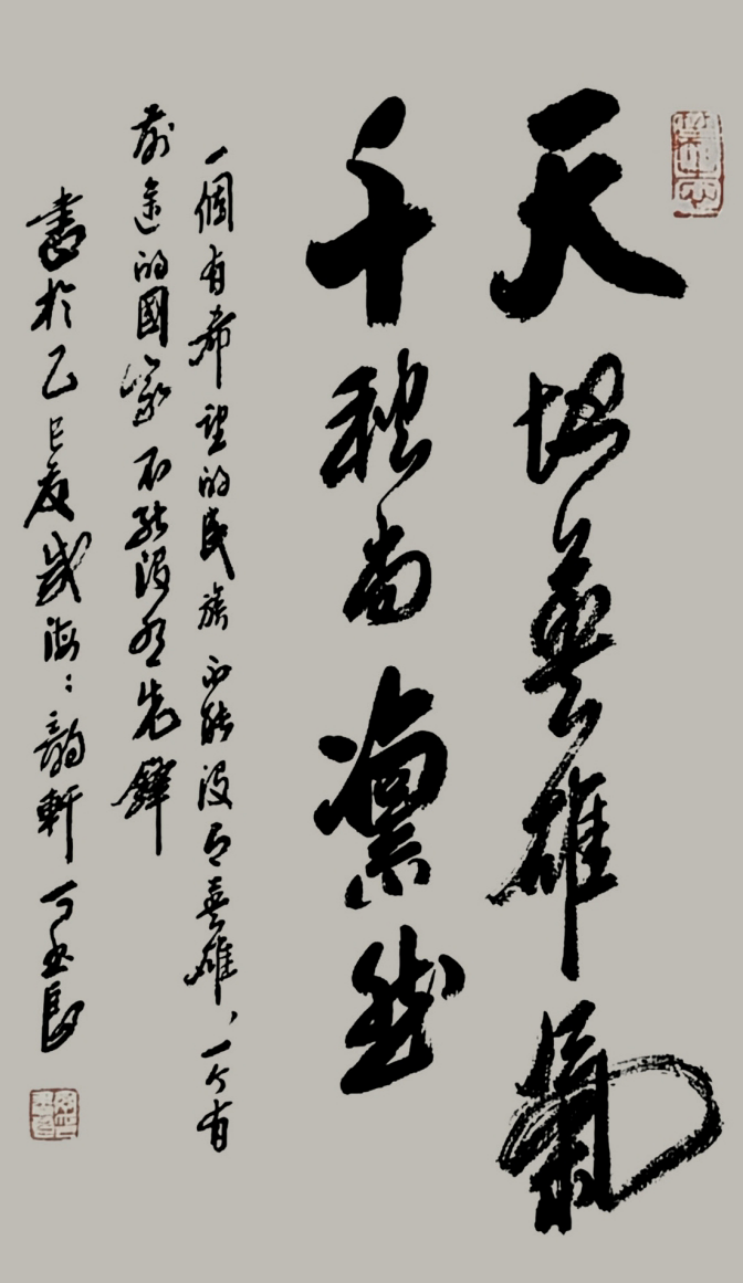 天地英雄氣
千秋尚凛然
一個有希望的民族不能没有英雄、一个有
前途的國家不能没有先鋒
書於乙巳夏